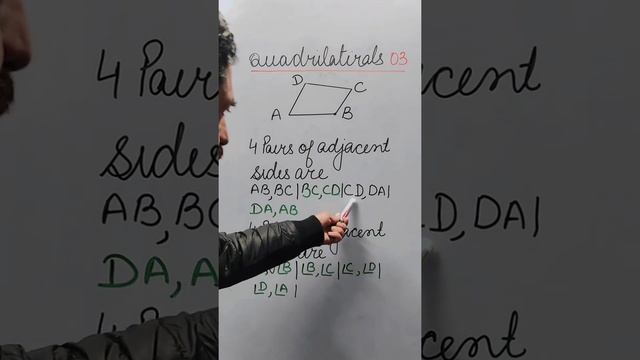 Quadrilatirals 03
D
C
A
B
4 Pairs of adjacent
sides are
AB, BC | BC, CD | CD, DA |
DA, AB
∠B | ∠B, ∠C | ∠C, ∠D |
∠D, ∠A |